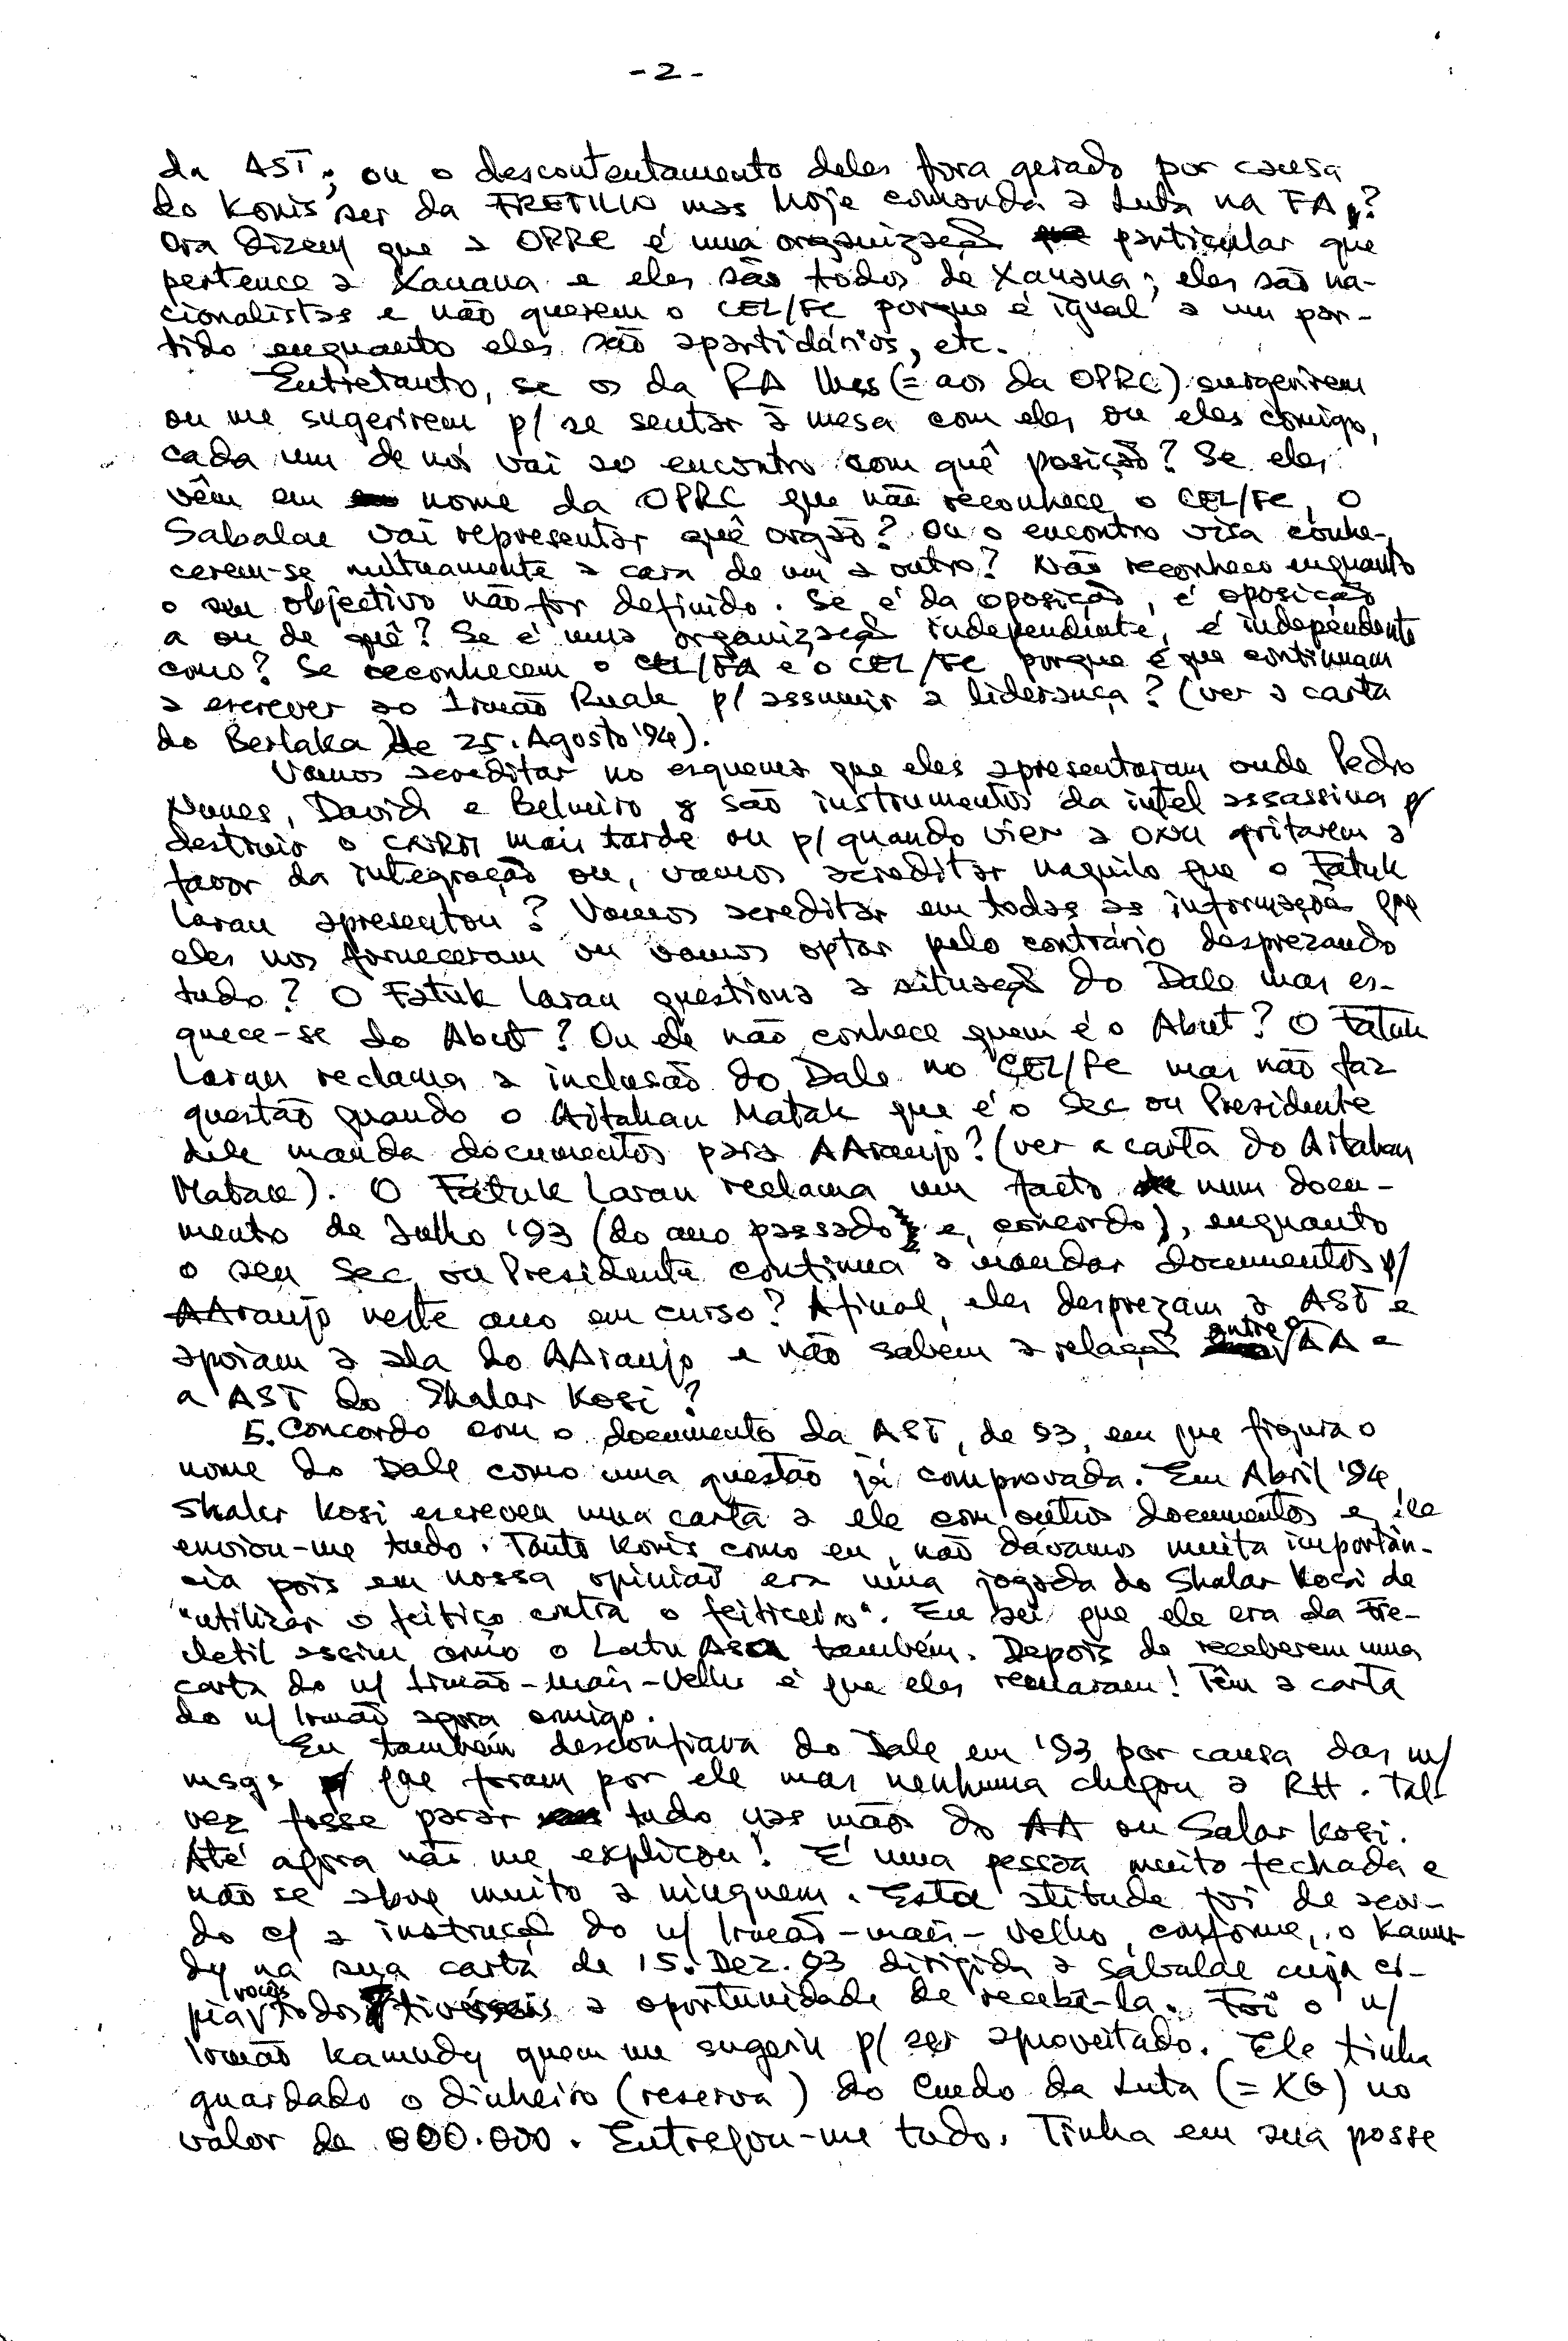 - 2 -
da AST; ou o descontentamento deles fora gerado por causa
do Konis ser da FRETILIN mas hoje comanda a Luta na FA?
Ora dizem que a OPRC é uma organização particular que
pertence a Xanana e eles são todos de Xanana; eles são na-
cionalistas e não querem o CEL/FC porque é igual a um par-
tido enquanto eles são apartidários, etc.
Entretanto, se os da RA lhes (= aos da OPRC) surgerirem
ou me sugerirem p/ se sentar à mesa com eles ou eles comigo,
cada um de nós vai ao encontro com quê posição? Se eles
vêm em nome da OPRC que não reconhece o CEL/FC, o
Sabalae vai representar quê orgão? Ou o encontro visa conhe-
cerem-se mutuamente a cara de um a outro? Não reconheço enquanto
o seu objectivo não for definido. Se é da oposição, é oposição
a ou de quê? Se é uma organização independiente, é independente
como? Se reconhecem o CEL/FA e o CEL/FC porque é que continuam
a escrever ao Irmão Ruak p/ assumir a liderança? (ver a carta
do Berlaka de 25. Agosto '94).
Vamos acreditar no esquema que eles apresentaram onde Pedro
Nunes, David e Belmiro são instrumentos da intel assassina p/
destruir o CNRM mais tarde ou p/ quando vier a ONU gritarem a
favor da integração ou, vamos acreditar naquilo que o Fatuk
Laran apresentou? Vamos acreditar em todas as informações que
eles nos forneceram ou vamos optar pelo contrário desprezando
tudo? O Fatuk Laran questiona a situação do Dale mas es-
quece-se do Abut? Ou ele não conhece quem é o Abut? O Fatuk
Laran reclama a inclusão do Dale no CEL/FC mas não faz
questão quando o Aitahan Matak que é o Sec ou Presidente
dele manda documentos para AAraujo? (ver a carta do Aitahan
Matak). O Fatuk Laran reclama um facto num docu-
mento de Julho '93 (do ano passado e, concordo), enquanto
o seu Sec ou Presidente continua a mandar documentos p/
AAraujo neste ano em curso? Afinal, eles desprezam a AST e
apoiam a ala do AAraujo e não sabem a relação entre o AA e
a AST do Shalar Kosi?
5. Concordo com o documento da AST, de 93, em que figura o
nome do Dale como uma questão já comprovada. Em Abril '94
Shalar Kosi escreveu uma carta a ele com outros documentos e ele
enviou-me tudo. Tanto Konis como eu, não dávamos muita importân-
cia pois em nossa opinião era uma jogada do Shalar Kosi de
"utilizar o feitiço contra o feiticeiro". Eu sei que ele era da Fre-
cletil assim como o Latu Asan também. Depois de receberem uma
carta do n/ Irmão-mais-Velho é que eles recuaram! Têm a carta
do n/ Irmão agora comigo.
Eu também desconfiava do Dale em '93 por causa das m/
msgs que foram por ele mas nenhuma chegou a RH. Tal-
vez fosse parar tudo nas mãos do AA ou Salar Kosi.
Até agora não me explicou! É uma pessoa muito fechada e
não se abre muito a ninguem. Esta atitude foi de acor-
do c/ a instrução do n/ Irmão-mais-Velho, conforme, o Kamu-
dy na sua carta de 15. Dez. 93 dirigida a Sabalae cuja có-
pia vocês todos tivésseis a oportunidade de recebê-la. Foi o n/
Irmão Kamudy quem me sugeriu p/ ser aproveitado. Ele tinha
guardado o dinheiro (reserva) do Cmdo da Luta (= XG) no
valor de 800.000. Entregou-me tudo. Tinha em sua posse